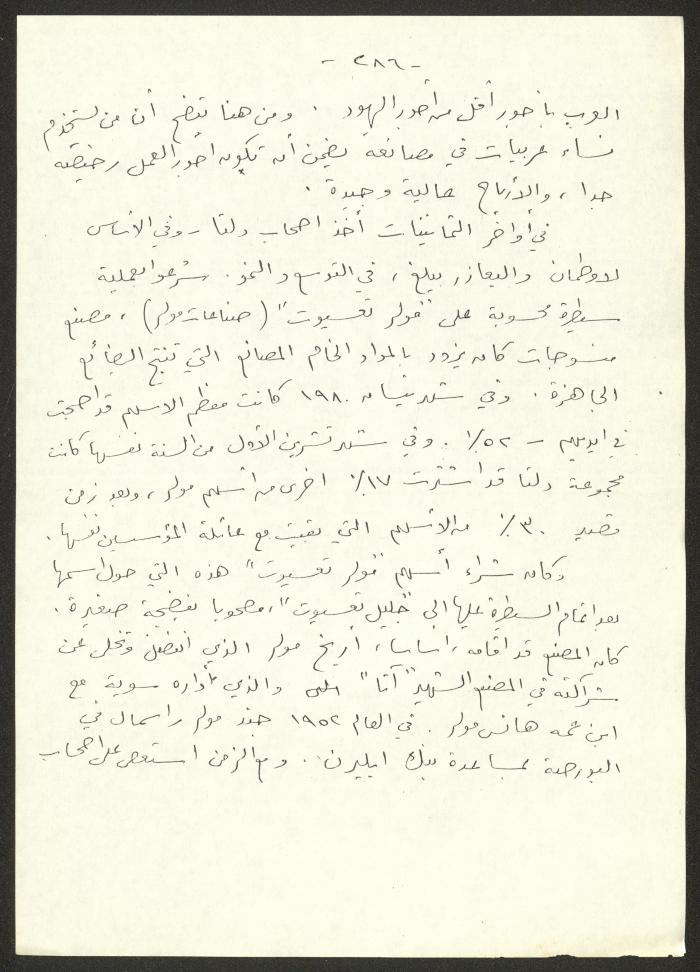 - ٢٨٦ -
العرب بأجور أقل من أجور اليهود . ومن هنا يتضح أن من يستخدم
نساء عربيات في مصانعه يضمن أن تكون اجور العمل رخيصة
جدا ، والأرباح عالية وجيدة .
في أواخر الثمانينات أخذ اصحاب دلتا - وفي الأساس
لاوطمان والیعازر بيلغ ، في التوسع والنمو . شرعوا بعملية
سيطرة محسوبة على "مولر تكسيوت" (صناعات مولر) ، مصنع
منسوجات كان يزود بالمواد الخام المصانع التي تنتج البضائع
الجاهزة . وفي شهر نيسان ١٩٨٠ كانت معظم الاسهم قد اصبحت
في ايديهم - ٥٢٪ . وفي شهر تشرين الأول من السنة نفسها كانت
مجموعة دلتا قد اشترت ١٧٪ اخرى من أسهم مولر ، وبعد زمن
قصير ٣٠٪ من الأسهم التي بقيت مع عائلة المؤسسين نفسها .
وكان شراء أسهم "مولر تكسيوت" هذه التي حول اسمها
بعد اتمام السيطرة عليها الى "جليل تكسيوت" ، مصحوبا بفضيحة صغيرة .
كان المصنع قد اقامه ، اساسا ، أريخ مولر الذي انفصل وتخلى عن
شراكته في المصنع الشهير "آتا" والذي أداره سوية مع
ابن عمه هانس مولر . في العام ١٩٥٢ جند مولر راسمال في
البورصة بمساعدة بنك ايليرن . ومع الزمن استعصى على اصحاب